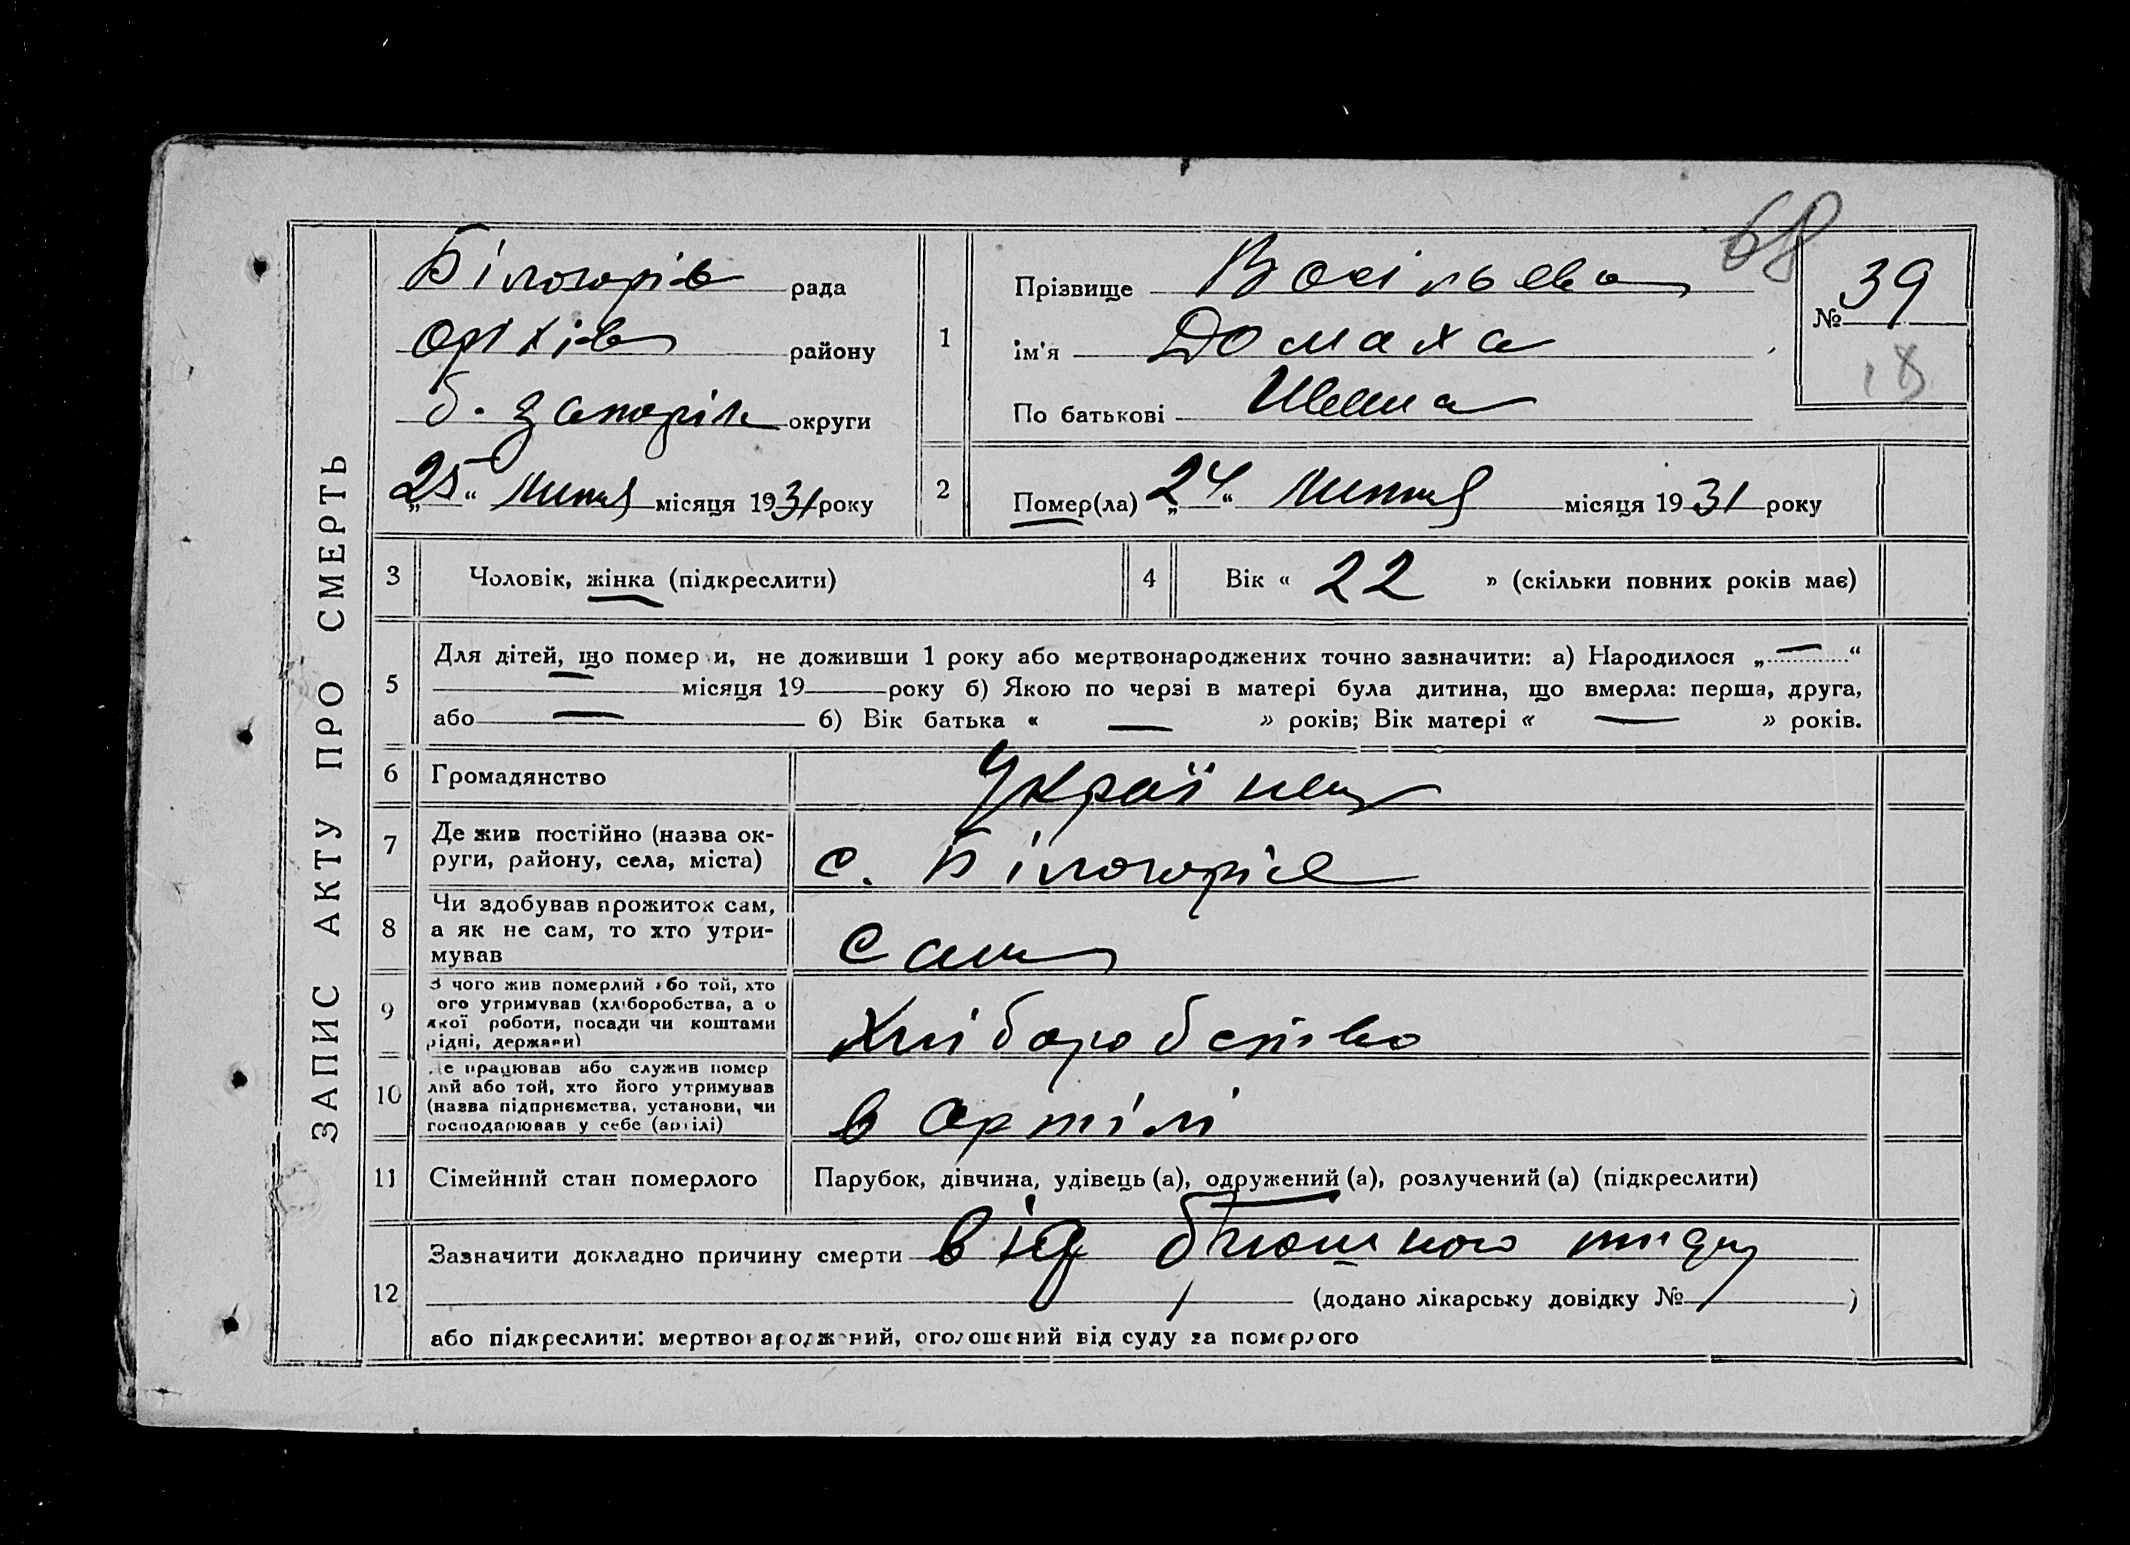 ЗАПИС АКТУ ПРО СМЕРТЬ
68
Білогорів рада
Оріхів району
б. Запоріж округи
„25“ липня місяця 1931 року
1
Прізвище Васільєва
ім'я Домаха
По батькові Ивана
№ 39
18
2
Помер(ла) „24“ липня місяця 1931 року
3 Чоловік, жінка (підкреслити)
4 Вік « 22 » (скільки повних років має)
5
Для дітей, що помер и, не доживши 1 року або мертвонароджених точно зазначити: а) Народилося „ — “
місяця 19 року б) Якою по черзі в матері була дитина, що вмерла: перша, друга,
або — б) Вік батька « — » років; Вік матері « — » років.
6 Громадянство Українец
7 Де жив постійно (назва ок-
руги, району, села, міста) с. Білогоріє
8 Чи здобував прожиток сам,
а як не сам, то хто утри-
мував
сам
9 З чого жив померлий або той, хто
ого утримував (хліборобства, а о
якої роботи, посади чи коштами
рідні, держави)
Хліборобство
10 Де працював або служив помер
лий або той, хто його утримував
(назва підприємства, установи, чи
господарював у себе (артілі)
в артілі
11 Сімейний стан померлого Парубок, дівчина, удівець (а), одружений (а), розлучений (а) (підкреслити)
12
Зазначити докладно причину смерти від брюшного тифу
(додано лікарську довідку № )
або підкреслити: мертвонароджений, оголошений від суду за померлого